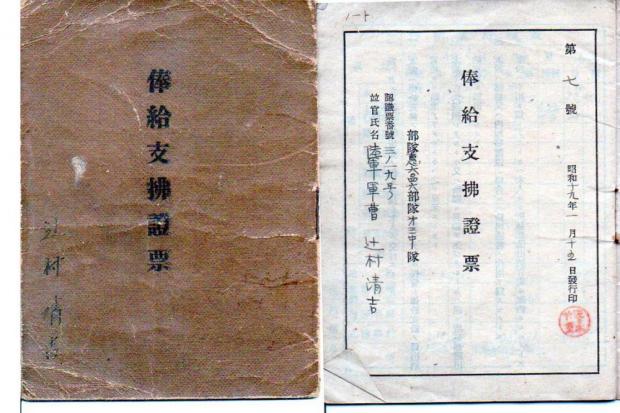 俸給支拂證票
辻村清吉
第七號
昭和十九年一月十五日發行印
俸給支拂證票
部隊
部隊
中隊
認識票番號三ノ一九号
竝官氏名陸軍軍曹辻村清吉